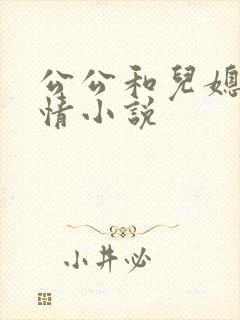 公公和兒媳
情小說
小井必